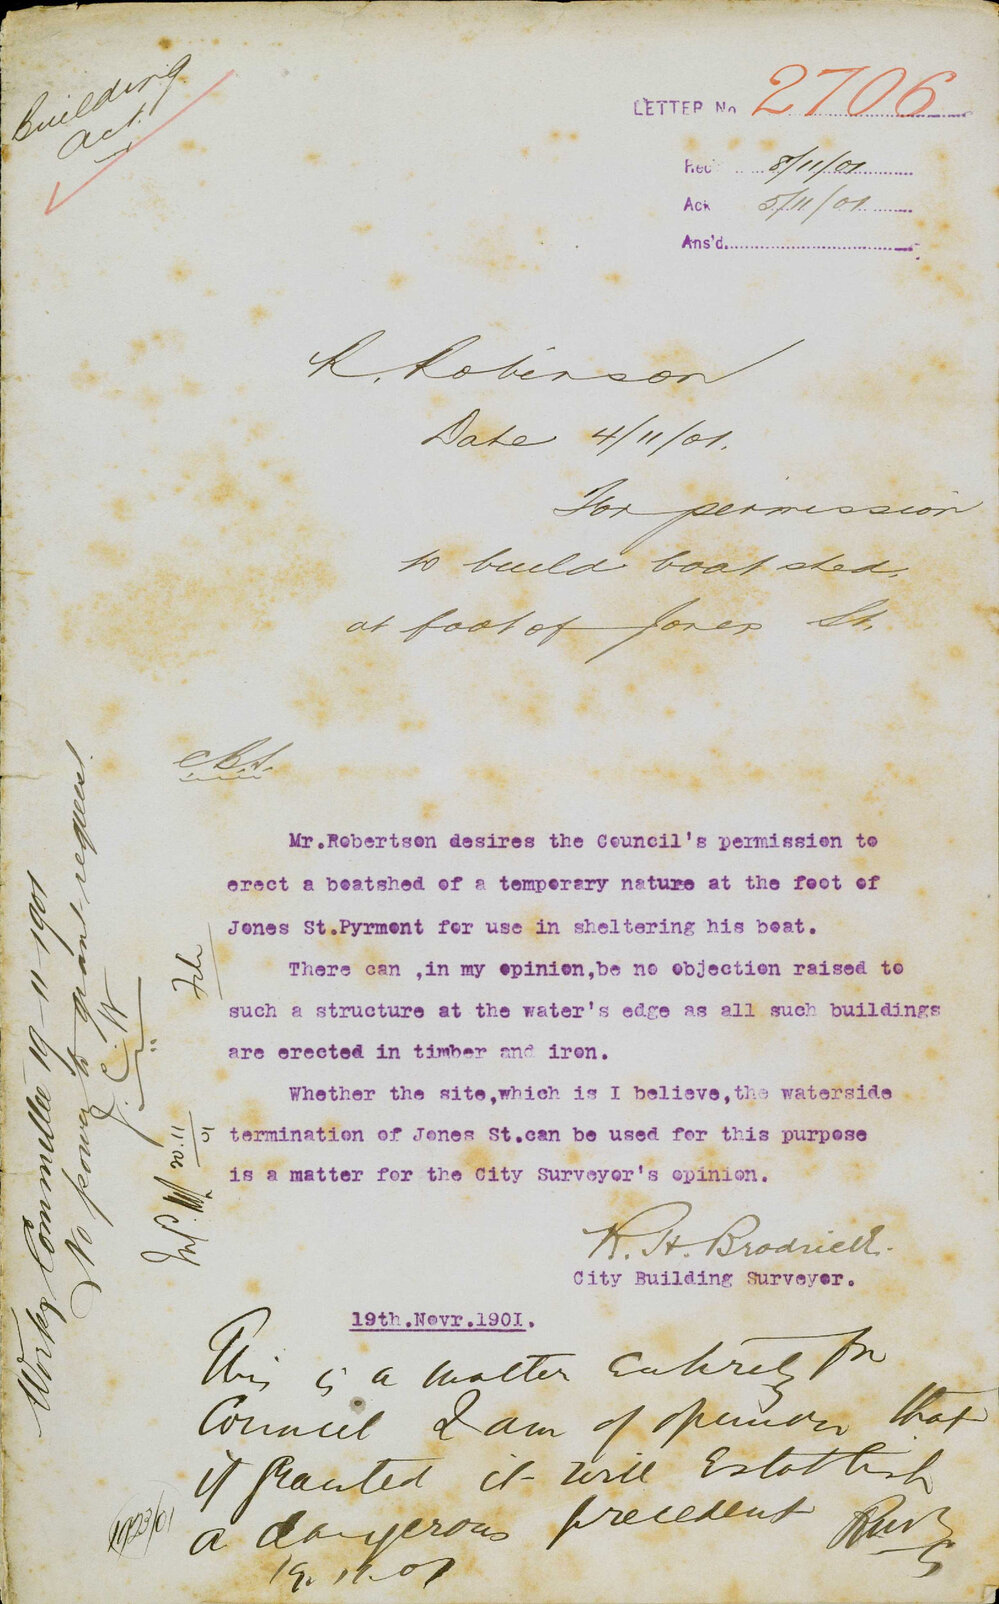 Building
Act.
LETTER No 2706
Rec 8/11/01
Ack 5/11/01
Ans'd.
R. Robinson
Date 4/11/01.
For permission
to build boat shed,
at foot of Jones St.
C.B.S.
Mr.Robertson desires the Council's permission to
erect a boatshed of a temporary nature at the foot of
Jones St.Pyrmont for use in sheltering his boat.
There can ,in my opinion,be no objection raised to
such a structure at the water's edge as all such buildings
are erected in timber and iron.
Whether the site,which is I believe,the waterside
termination of Jones St.can be used for this purpose
is a matter for the City Surveyor's opinion.
R. H. Brodrick.
City Building Surveyor.
19th.Novr.1901.
This is a matter entirely for
Council I am of opinion that
if granted it will establish
a dangerous precedent
19.11.01
Works Committee 19-11-1901
No power to grant request.
J. C. W
20.11
01
1723/01